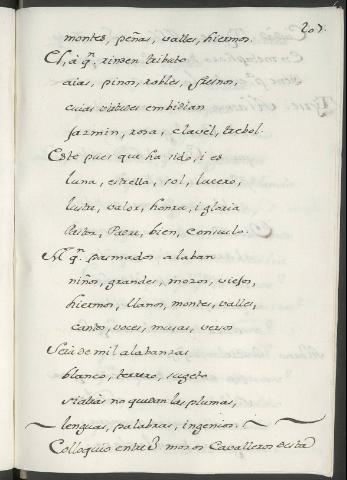 207.
montes, peñas, valles, hiermos.
El, à qⁿ. rinden tributo
aias, pinos, robles, fresnos,
cuias virtudes embidian
jazmin, rosa, clavel, trebol.
Este pues que ha sido, i es
luna, estrella, sol, lucero,
lustre, valor, honra, i gloria
Pastor, Padre, bien, Consuelo.
A qⁿ. pasmados alaban
niños, grandes, mozos, viejos,
hiermos, llanos, montes, valles,
cantos, voces, musas, versos
Será de mil alabanzas
blanco, terrero, sugeto
si atrás no quedan las plumas,
lenguas, palabras, ingenios.
Colloquio entre 3 mozos Cavalleros desta